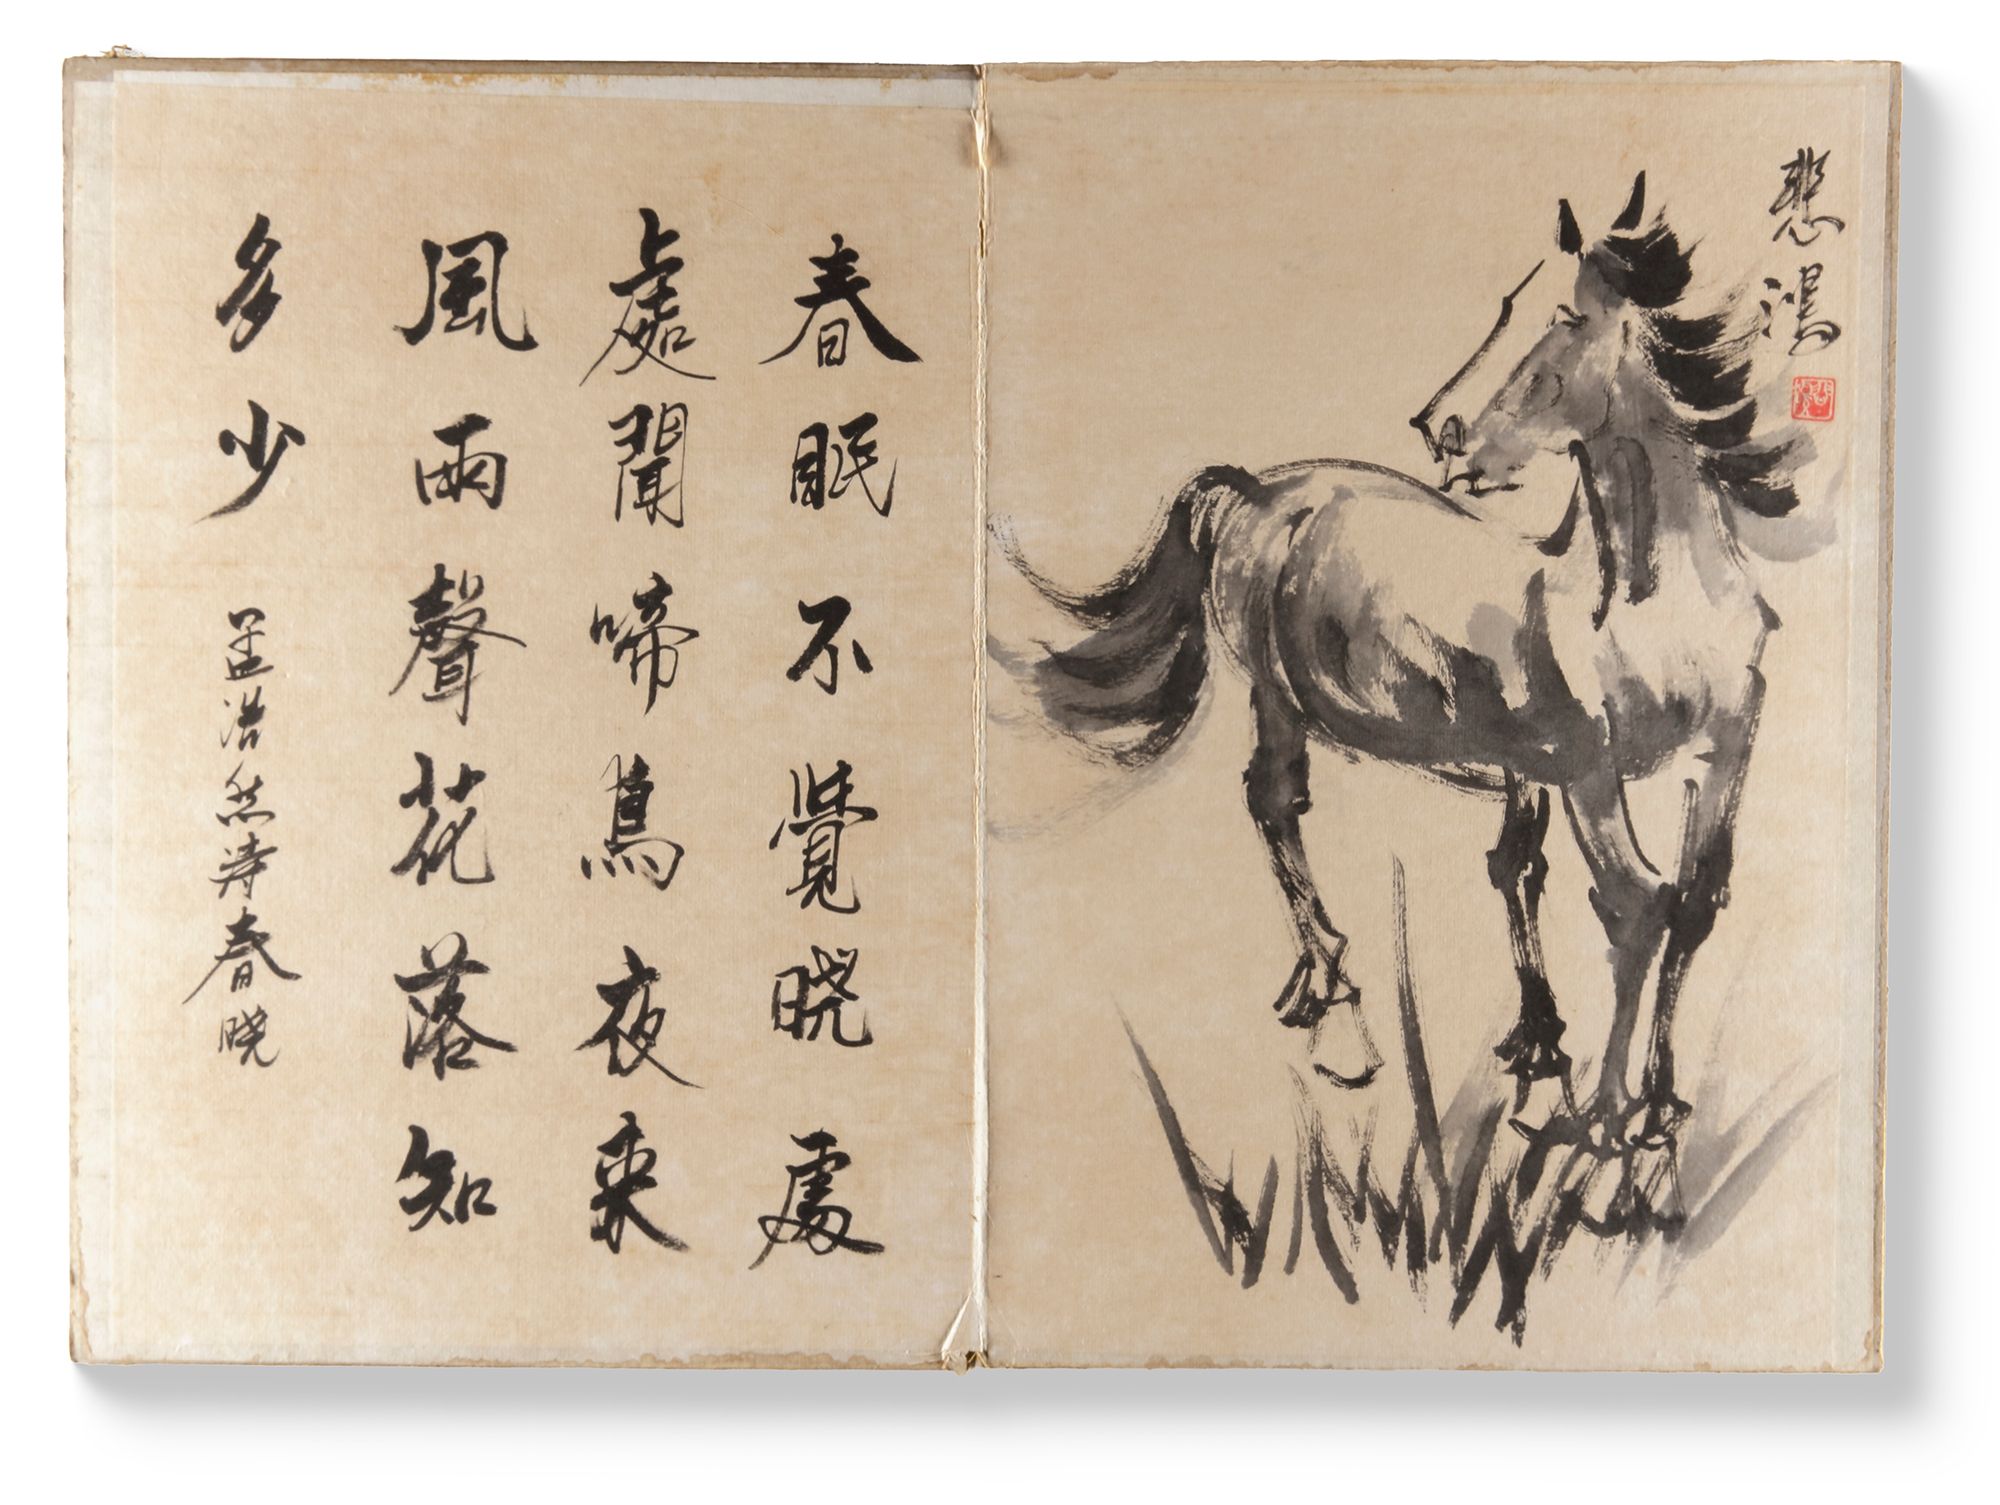 悲鴻
春眠不覺晓處
處聞啼鳥夜来
風雨聲花落知
多少
孟浩然詩春晓